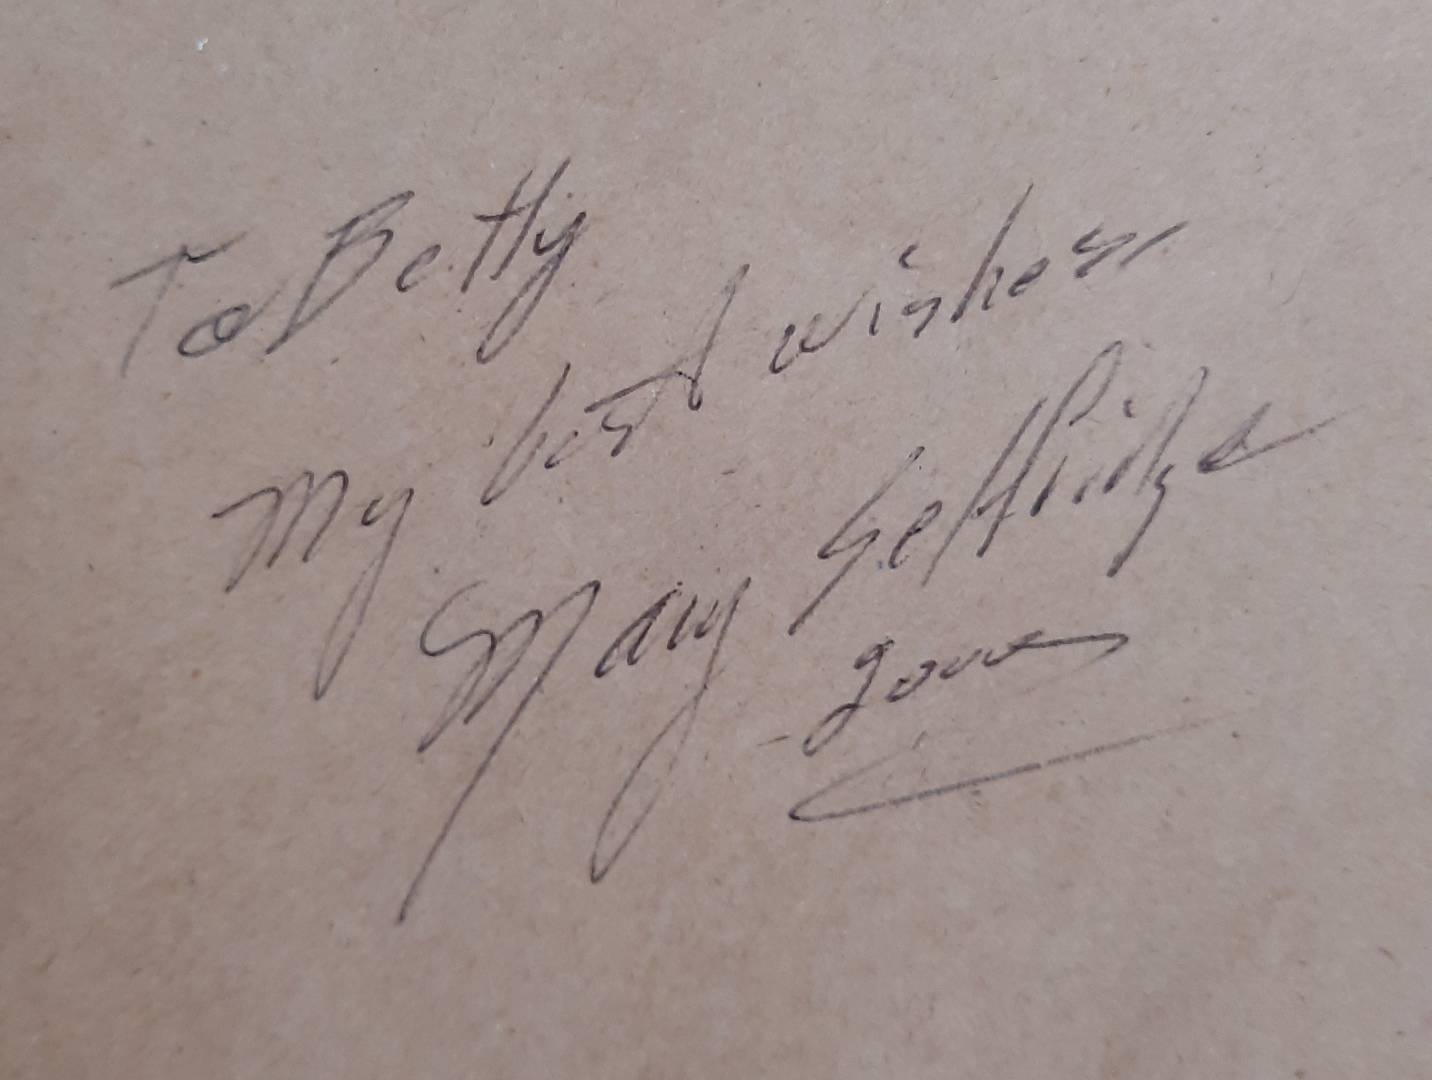 To Betty
My best wishes
Mary Selfridge